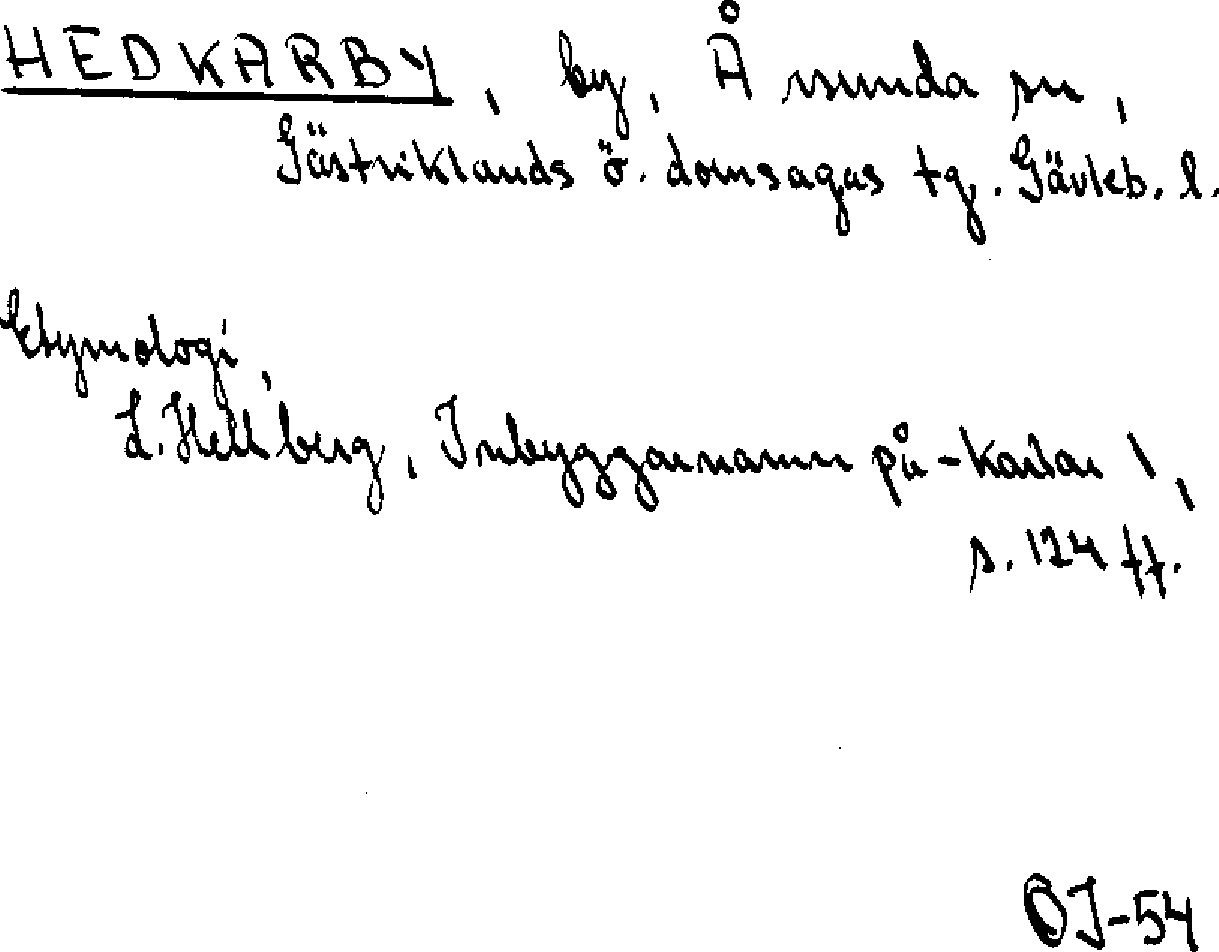 HEDKARBY, by, Årsunda sn,
Gästriklands ö. domsagas tg. Gävleb. l.
Etymologi,
L. Hellberg, Inbyggarnamn på -karlar 1,
s. 124 ff.
OJ-54